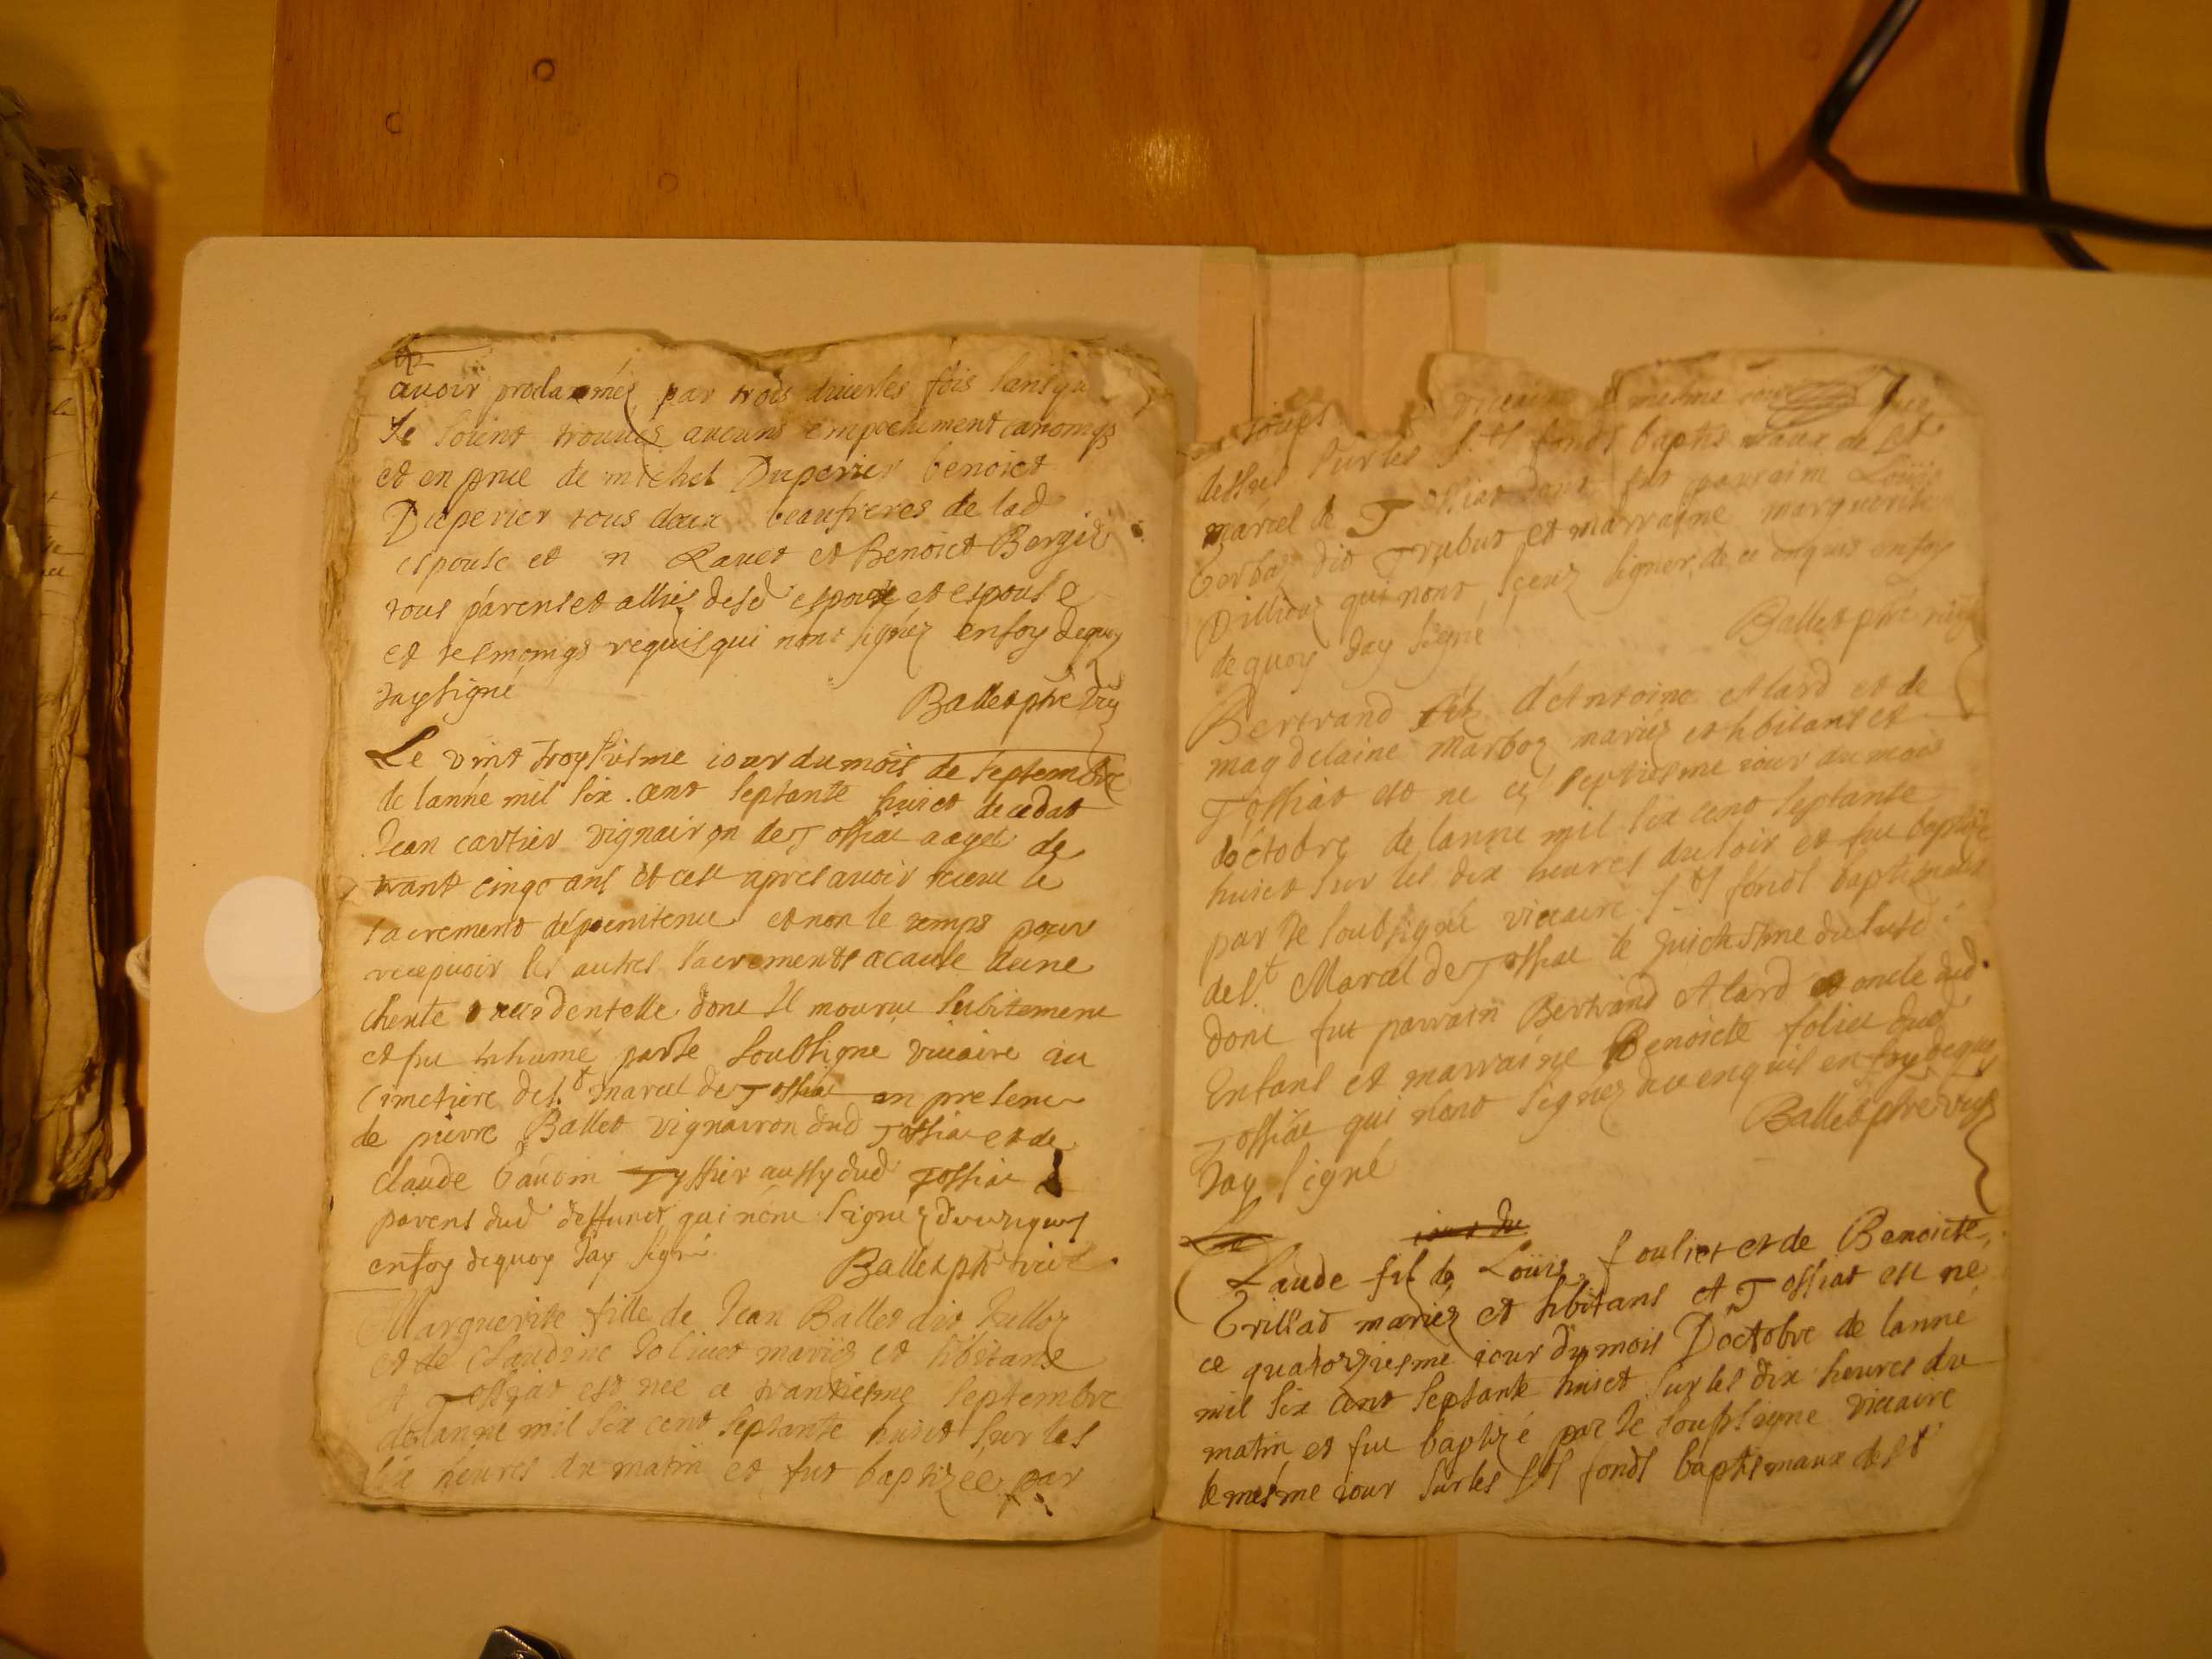 avoir proclamés par trois diverses fois sans qu
Je soient trouués aucuns empechement canonigs
et en pnce de michel Duperier benoict
Duperier tous deux beaufreres de lad
espouse et Rauet et Benoict Bergier
tous parens et alliés desd espoux et espouse
et tesmoings requis qui nont signéz enfoy dequoy
Jay signé
Ballet pbre vic
Le vint troysiesme iour du mois de septembre
de lanné mil six cent septante huict decedat
Jean cartier vignairon de Tossiat aagé de
trante cinqc ans et cest apres avoir receu le
sacrement de poenitence et non le temps pour
recepuoir les autres sacrements a cause dune
cheute accidentelle dont Il mourut subitement
et fut Inhumé par Je soubsigné vicaire au
Cimetiere de st marcel de Tossiat en presence
de pierre Ballet vignairon dud Tossiat et de
claude Gaudin Tyssier aussy dud Tossiat
parens dud deffunct qui nont signéz de ce requis
enfoy dequoy Jay signé
Ballet pbr vic
Marguerite fille de Jean Ballet dit Julloz
et de Claudine Joliuet mariéz et hbitans
A Tossiat est nee ce trantiesme septembre
de lanne mil six cent septante huict sur les
six heures du matin et fut baptizée par
vicaire le mesme iour
dessus sur les S.ts fonds baptismaux de st
marcel de Tossiat dont fut parrain Loüis
Gerbaz dit Trubut et marraine marguerite
qui nont sceuz signer de ce enquis enfoy
de quoy Jay signé
Ballet pbre vic
Bertrand filz d'Antoine Alard et de
magdelaine Marboz mariéz et hbitans et
Tossiat est ne ce septiesme iour du mois
doctobre de lanne mil six cent septante
huict sur les dix heures du soir et fut baptizé
par Je soubsigné vicaire S.ts fonds baptismaux
de st Marcel de Tossiat le huictiesme dususd
dont fut parrain Bertrand Alard oncle dud
Enfans et marraine Benoicte foliet dud
Tossiat qui nont signéz de ce enquis enfoy dequoy
Jay signé
Ballet pbre vic
Laude fil de Loüis fouliet et de Benoicte
Grillad mariéz et hbitans A Tossiat est ne
ce quatorziesme iour du mois Doctobre de lanné
mil six cent septante huict sur les dix heures du
matin et fut baptizé par Je soubsigne vicaire
le mesme iour sur les S.ts fonds baptismaux de st